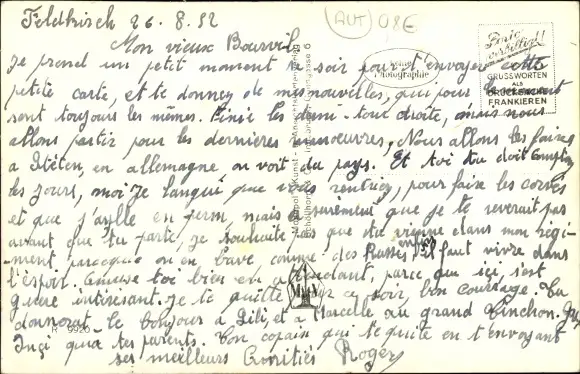 Feldkirch 26.8.52
(AUT) URE
Mon vieux Bourvil
Je prend un petit moment ce soir pour t'envoyer cette
petite carte, et te donner de mes nouvelles, qui pour le moment
sont toujours les mêmes. les demi-tour droite, mais nous
allons partir pour les dernières manoeuvres, Nous allons les faires
a en allemagne on voit du pays. Et toi tu doit compter
les jours, moi je langui que vous rentriez, pour faire les corvés
et que j'aylle en perm, mais surement que je te reverait pas
avant que tu parte, je souhaite pas que tu vienne dans mon regi-
ment parceque on en bave comme des Russes, enfin il faut vivre dans
l'espoir. Amuse toi bien en attendant, parce que ici, s'est
guère intéressant. Je te quitte pour ce soir, bon courage. Tu
donnerat le bonjours à Lili, et a Marcelle au grand
qua tes parents. Ton copain qui te quite en t'envoyant
ses meilleurs Amitiés Roger
Echte Photographie
Porto verbilligt!
GRUSSWORTEN
ALS
DRUCKSACHE
FRANKIEREN